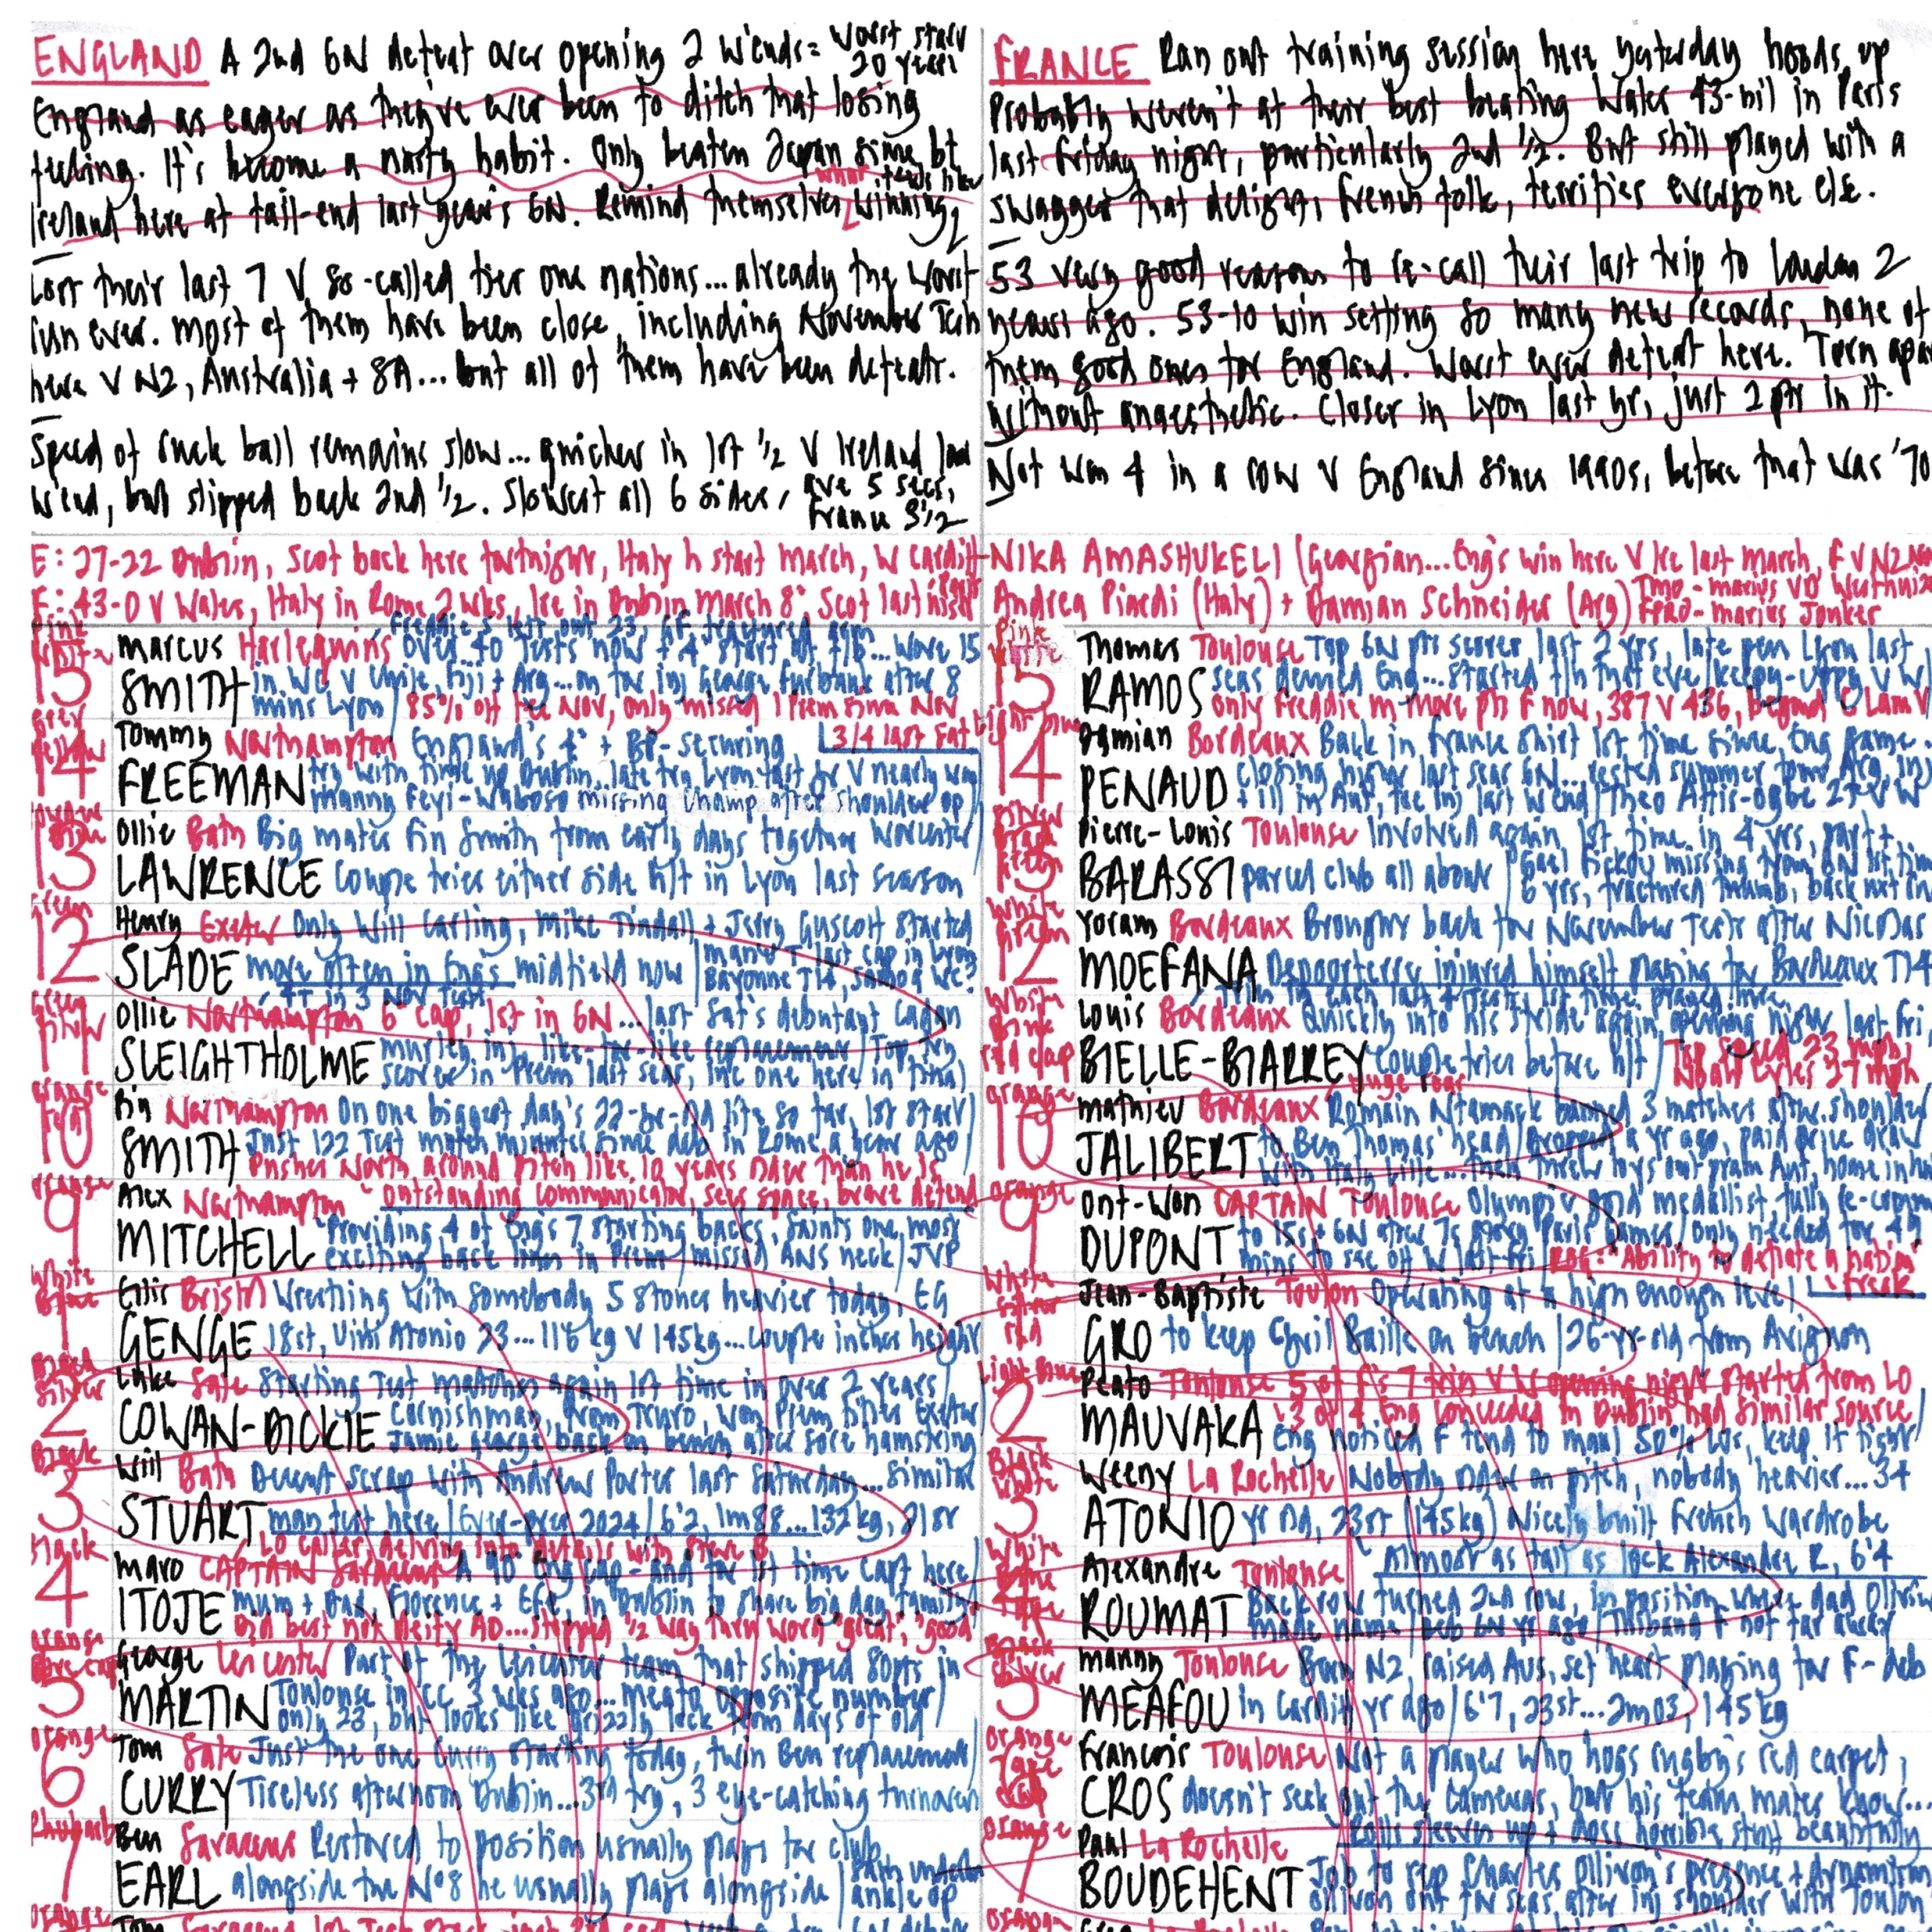 ENGLAND A 2nd 6N defeat over opening 2 w'ends = worst start 20 years
England as eager as they've ever been to ditch that losing
feeling. It's become a nasty habit. Only beaten Japan since bt
what feels like
Ireland here at tail-end last year's 6N. Remind themselves winning
Lost their last 7 V so-called tier one nations... already the worst
run ever. Most of them have been close, including November Tests
here V NZ, Australia + SA... but all of them have been defeats.
Speed of ruck ball remains slow... quicker in 1st 1/2 V Ireland last
w'end, but slipped back 2nd 1/2. Slowest all 6 sides, ave 5 secs,
France 3 1/2
FRANCE Ran out training session here yesterday hoods up
Probably weren't at their best beating Wales 43-nil in Paris
last Friday night, particularly 2nd 1/2. But still played with a
swagger that delights French folk, terrifies everyone else.
53 very good reasons to re-call their last trip to London 2
years ago. 53-10 win setting so many new records, none of
them good ones for England. Worst ever defeat here. Torn apart
without anaesthetic. Closer in Lyon last yr, just 2 pts in it.
Not won 4 in a row V England since 1990s, before that was '70
E: 27-22 Dublin, Scot back here fortnight, Italy h start March, W Cardiff
F: 43-0 V Wales, Italy in Rome 2 wks, Ire in Dublin March 8, Scot last night Paris
NIKA AMASHUKELI (Georgian... Eng's win here V Ire last March, F V NZ Nov
Andrea Piardi (Italy) + Damian Schneider (Arg) TMO - Marius VD Westhuizen
FPRO - Marius Jonker
15 Marcus Harlequins over 40 Tests now
SMITH in WC V Chile, Fiji + Arg... on for inj George Furbank after 8
mins Lyon / 85% off tee Nov, only missed 1 Prem since Nov
Grey
Yellow
14 Tommy Northampton England's 4 + BP-securing 3/4 last Sat
FREEMAN try with time up Dublin.. late try Lyon last yr V nearly won
Manny Feyi-Waboso missing champ after shoulder op
13 Ollie Bath Big mates Fin Smith from early days together Worcester
LAWRENCE Couple tries either side h/t in Lyon last season
Green
12 Henry Exeter Only Will Carling, Mike Tindall + Jerry Guscott started
SLADE more often in Eng's midfield now
4T in 3 Nov Tests
11 Ollie Northampton 6 cap, 1st in 6N... last Sat's debutant Cadan
SLEIGHTHOLME Murley inj, like-for-like replacement / Top try
scorer in Prem last seas, inc one here in final
Orange
10 Fin Northampton On one biggest days 22-yr-old life so far, 1st start
SMITH Just 122 Test match minutes since deb in Rome a year ago
Pushes North around pitch like 10 years older than he is
Outstanding communicator, sees space, brave defend
Orange
9 Alex Northampton
MITCHELL Providing 4 of Eng's 7 starting backs, Saints one, most
exciting back lines in Prem / missed ANS neck / JVP
White
1 Ellis Bristol Wrestling with somebody 5 stones heavier today, EG
GENGE 18st, Uini Atonio 23... 118 kg V 145kg... couple inches height
Silver
2 Luke Sale Starting Test matches again 1st time in over 2 years
COWAN-DICKIE Cornishman, from Truro, won Prem titles Exeter
Jamie George back on bench after sore hamstring
Black
3 Will Bath Decent scrap with Andrew Porter last Saturday... similar
STUART man test here / Ever-pres 2024 / 6'2, 1m88... 132kg, 21st
LO caller, delving into details with Steve B
Black
4 Maro CAPTAIN Saracens A 90 Eng cap - and for 1st time capt here
ITOJE Mum + Dad, Florence + Efe, in Dublin to share big day family
Did best not deify AD... stopped 1/2 way thru word "great", "good"
Orange
5 George Leicester Part of the Leicester team that shipped 80pts in
MARTIN Toulouse in CC 3 wks ago... Meafou opposite number
only 23, but looks like grizzly lock from days of old
Orange
6 Tom Sale Just the one Curry starting today, twin Ben replacement
CURRY Tireless afternoon Dublin... 3rd try, 3 eye-catching turnovers
Rhubarb
7 Ben Saracens Restored to position usually plays for club,
EARL alongside the No8 he usually plays alongside / Sam Underhill ankle op
Orange
Pink
15 Thomas Toulouse Top 6N pts scorer last 2 yrs, late pen Lyon last
RAMOS seas denied Eng... started f/h that eve / keepy-uppy V W
only Freddie M more pts F now, 387 V 436, beyond C Lam
14 Damian Bordeaux Back in France shirt 1st time since Eng game
PENAUD closing night last seas 6N... rested summer tour Arg, inj
+ ill in Aut, toe inj last w'end / Theo Attis-ogbe 2T V W
13 Pierre-Louis Toulouse Involved again 1st time in 4 yrs, part +
BARASSI parcel club all about / Gael Fickou missing from 6N 1st time
6 yrs, fractured thumb, back nxt
White
Green
12 Yoram Bordeaux Brought back for November Tests after Nicolas
MOEFANA Depoortere injured himself playing for Bordeaux T14
11 Louis Bordeaux Quickly into his stride again, opening night last Fri,
BIELLE-BIARREY couple tries before h/t / Top speed 23 mph,
Noah Lyles 27 mph
Red cap
Orange
10 Mathieu Bordeaux Romain Ntamack banned 3 matches after shoulder
JALIBERT to Ben Thomas' head / Dropped a yr ago, paid price draw
with Italy Lille... then threw toys out pram Aut, home
Orange
9 Ont-Won CAPTAIN Toulouse Olympic gold medallist, fully re-comm
DUPONT to 15s + 6N after 7s glory Paris Games / only needed for 49
mins to see off W last Fri / "Ability to deflate a nation"
Freak
White
Silver
Red
1 Jean-Baptiste Toulon Operating at a high enough level
GROS to keep Cyril Baille on bench / 26-yr-old from Avignon
Light Blue
2 Peato Toulouse 5 of F's 7 tries V W opening night started from LO
MAUVAKA 3 of 4 Eng conceded in Dublin had similar source
Eng noticed F tend to maul 50% LOs, keep it tight
Black
White
3 Weeny La Rochelle Nobody older on pitch, nobody heavier... 34
ATONIO yr old, 23st (145kg) Nicely built French Wardrobe
Almost as tall as lock Alexandre R, 6'4
White
4 Alexandre Toulouse Back row turned 2nd row, in position where dad Olivier
ROUMAT made name
Black
Silver
5 Manny Toulouse Born NZ, raised Aus, set heart playing for F - deb
MEAFOU in Cardiff yr ago / 6'7, 23st... 2m03, 145kg
Orange
Tape
6 Francois Toulouse Not a player who hogs rugby's red carpet,
CROS doesn't seek out the cameras, but his team mates know...
Rolls sleeves up + does horrible stuff beautifully
Orange
7 Paul La Rochelle
BOUDEHENT Job to stop Charles Ollivon's presence + dynamism
Ollivon out for seas after inj shoulder with Toulon